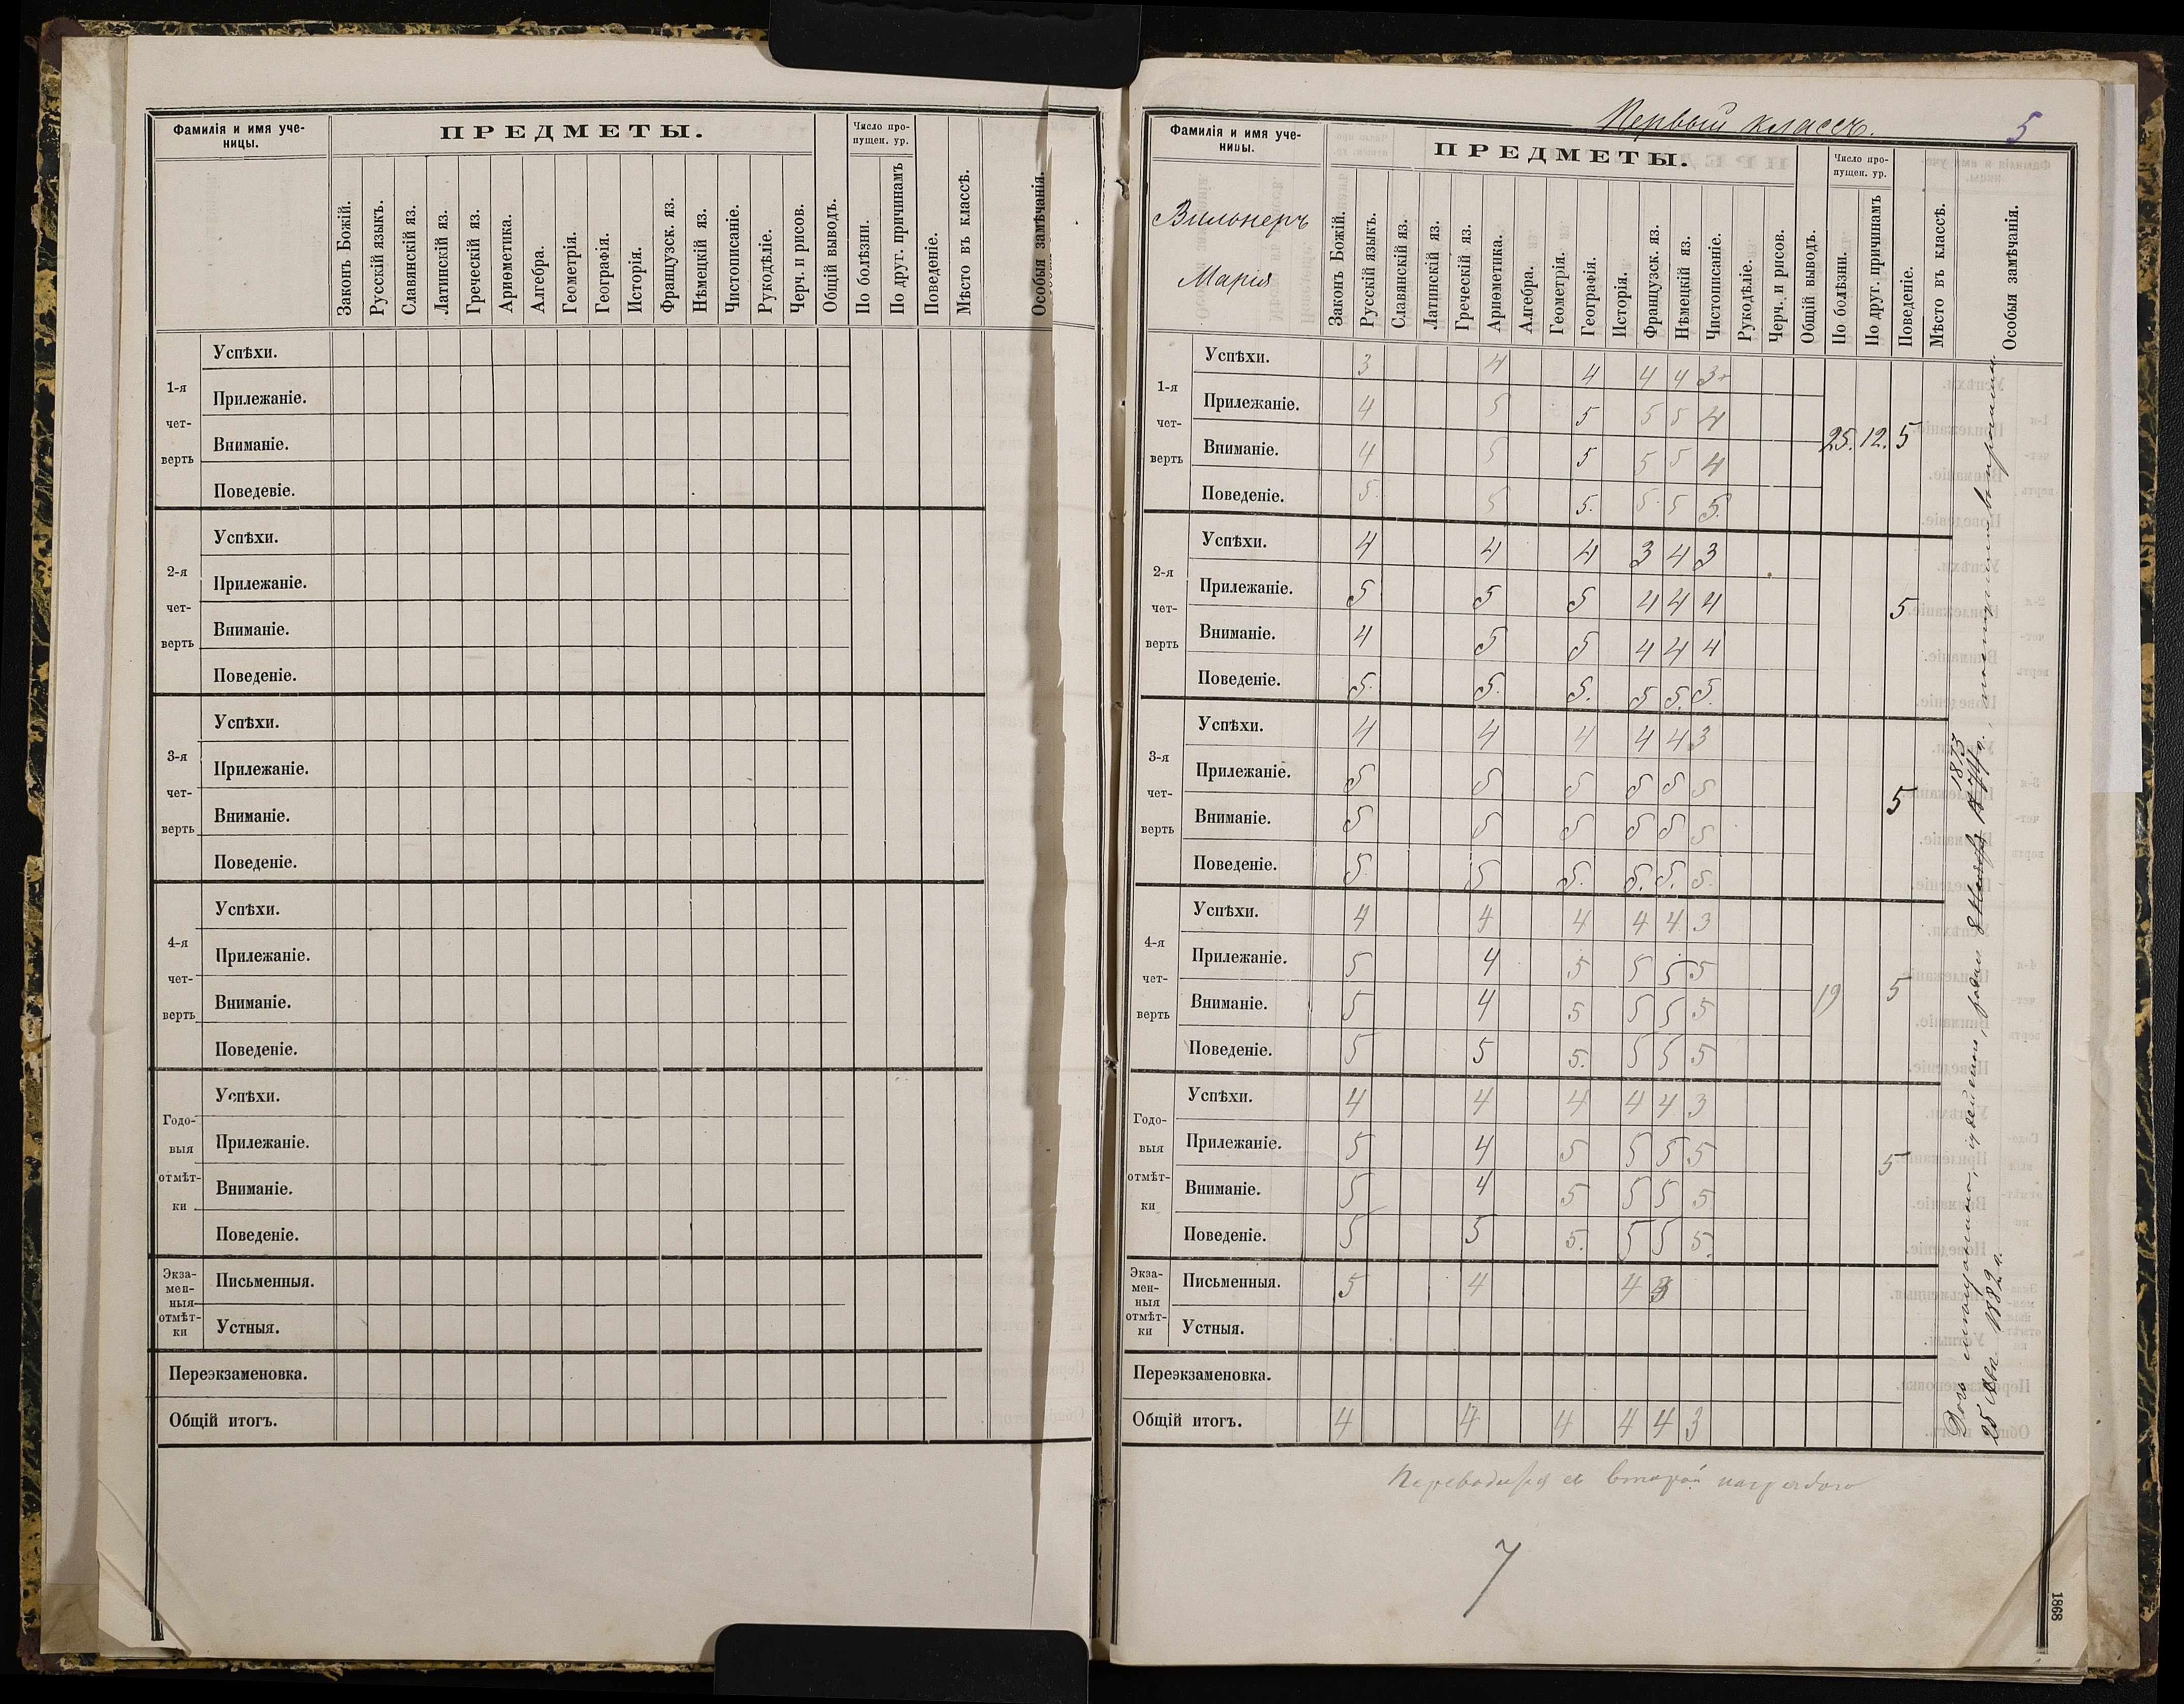 Фамилія и имя уче-
ницы.
ПРЕДМЕТЫ.
Число про-
пущен. ур.
Законъ Божій.
Русскій языкъ.
Славянскій яз.
Латинскій яз.
Греческій яз.
Ариѳметика.
Алгебра.
Геометрія.
Географія.
Исторія.
Французск. яз.
Нѣмецкій яз.
Чистописаніе.
Рукодѣліе.
Черч. и рисов.
Общій выводъ.
По болѣзни.
По друг. причинамъ
Поведеніе.
Мѣсто въ классѣ.
Особыя замѣчанія.
1-я чет- верть
Успѣхи.
Прилежаніе.
Вниманіе.
Поведевіе.
2-я чет- верть
Успѣхи.
Прилежаніе.
Вниманіе.
Поведеніе.
3-я чет- верть
Успѣхи.
Прилежаніе.
Вниманіе.
Поведеніе.
4-я чет- верть
Успѣхи.
Прилежаніе.
Вниманіе.
Поведеніе.
Годо- выя отмѣт- ки
Успѣхи.
Прилежаніе.
Вниманіе.
Поведеніе.
Экза- мен- ныя отмѣт- ки
Письменныя.
Устныя.
Переэкзаменовка.
Общій итогъ.
Первый классъ.
5
Фамилія и имя уче-
ницы.
Вильнеръ
Марія
ПРЕДМЕТЫ.
Число про-
пущен. ур.
Законъ Божій.
Русскій языкъ.
Славянскій яз.
Латинскій яз.
Греческій яз.
Ариѳметика.
Алгебра.
Геометрія.
Географія.
Исторія.
Французск. яз.
Нѣмецкій яз.
Чистописаніе.
Рукодѣліе.
Черч. и рисов.
Общій выводъ.
По болѣзни.
По друг. причинамъ
Поведеніе.
Мѣсто въ классѣ.
Особыя замѣчанія.
1-я чет- верть
Успѣхи. 3 4 4 4 4 3+
Прилежаніе. 4 5 5 5 5 4
Вниманіе. 4 5 5 5 5 4
25. 12. 5
Поведеніе. 5. 5 5. 5. 5 5.
2-я чет- верть
Успѣхи. 4 4 4 3 4 3
Прилежаніе. 5 5 5 4 4 4
5
Вниманіе. 4 5 5 4 4 4
Поведеніе. 5. 5. 5. 5 5. 5.
3-я чет- верть
Успѣхи. 4 4 4 4 4 3
Прилежаніе. 5 5 5 5 5 5
5
Вниманіе. 5 5 5 5 5 5
Поведеніе. 5. 5 5. 5. 5. 5.
4-я чет- верть
Успѣхи. 4 4 4 4 4 3
Прилежаніе. 5 4 5 5 5 5
Вниманіе. 5 4 5 5 5 5
19 5
Поведеніе. 5 5 5. 5 5 5
Годо- выя отмѣт- ки
Успѣхи. 4 4 4 4 4 3
Прилежаніе. 5 4 5 5 5 5
5
Вниманіе. 5 4 5 5 5 5.
Поведеніе. 5 5 5. 5 5 5.
Экза- мен- ныя отмѣт- ки
Письменныя. 5 4 4 3
Устныя.
Переэкзаменовка.
Общій итогъ. 4 4 4 4 4 3
1873
25 1882 г.
7
1868